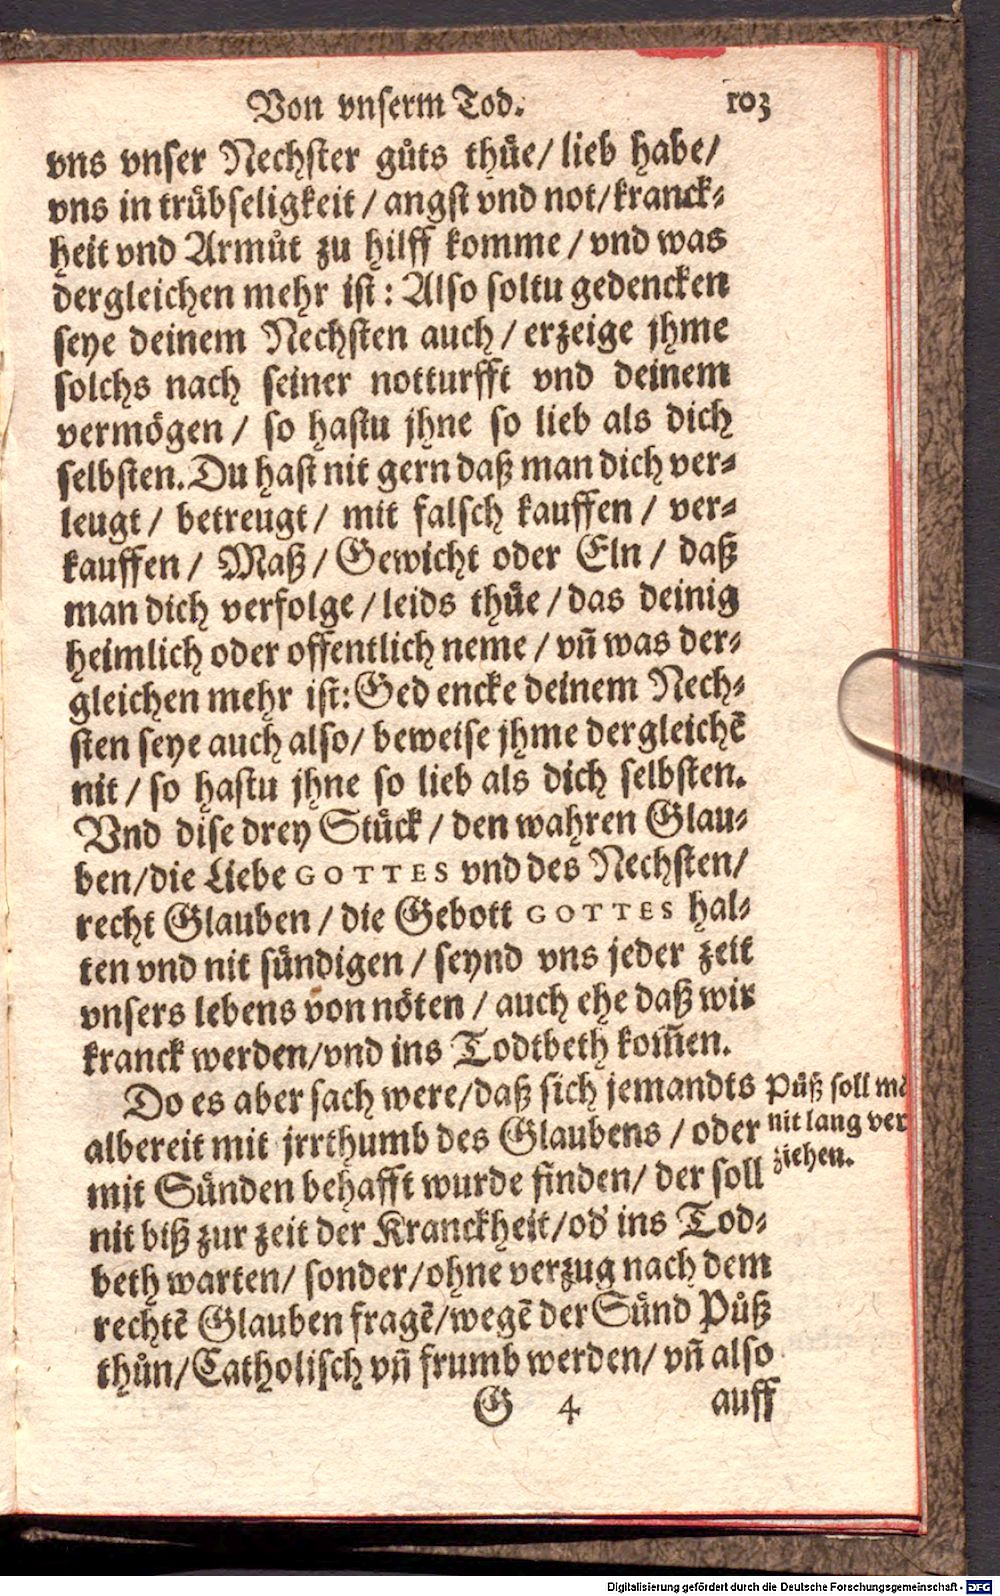 Von vnserm Tod. 103
vns vnser Nechster gůts thůe/ lieb habe/
vns in trůbseligkeit / angst vnd not/kranck⸗
heit vnd Armůt zu hilff komme / vnd was
dergleichen mehr ist : Also soltu gedencken
seye deinem Nechsten auch / erzeige jhme
solchs nach seiner notturfft vnd deinem
vermögen / so hastu jhne so lieb als dich
selbsten. Du hast nit gern daß man dich ver⸗
leugt / betreugt / mit falsch kauffen / ver⸗
kauffen / Maß / Gewicht oder Eln / daß
man dich verfolge / leids thůe / das deinig
heimlich oder offentlich neme / vn̄ was der⸗
gleichen mehr ist: Gedencke deinem Nech⸗
sten seye auch also/ beweise jhme dergleichē
nit / so hastu jhne so lieb als dich selbsten.
Vnd dise drey Stůck / den wahren Glau⸗
ben/die Liebe GOTTES vnd des Nechsten/
recht Glauben / die Gebott GOTTES hal⸗
ten vnd nit sůndigen / seynd vns jeder zeit
vnsers lebens von nöten / auch ehe daß wir
kranck werden/vnd ins Todtbeth kom̄en.
Do es aber sach were/daß sich jemandts
albereit mit jrrthumb des Glaubens / oder
mit Sůnden behafft wurde finden/ der soll
nit biß zur zeit der Kranckheit/od' ins Tod⸗
beth warten/ sonder/ohne verzug nach dem
rechtē Glauben fragē/wegē der Sůnd Půß
thůn/Catholisch vn̄ frumb werden/ vn̄ also
Půß soll mā
nit lang ver
ziehen.
G 4 auff
Digitalisierung gefördert durch die Deutsche Forschungsgemeinschaft - DFG